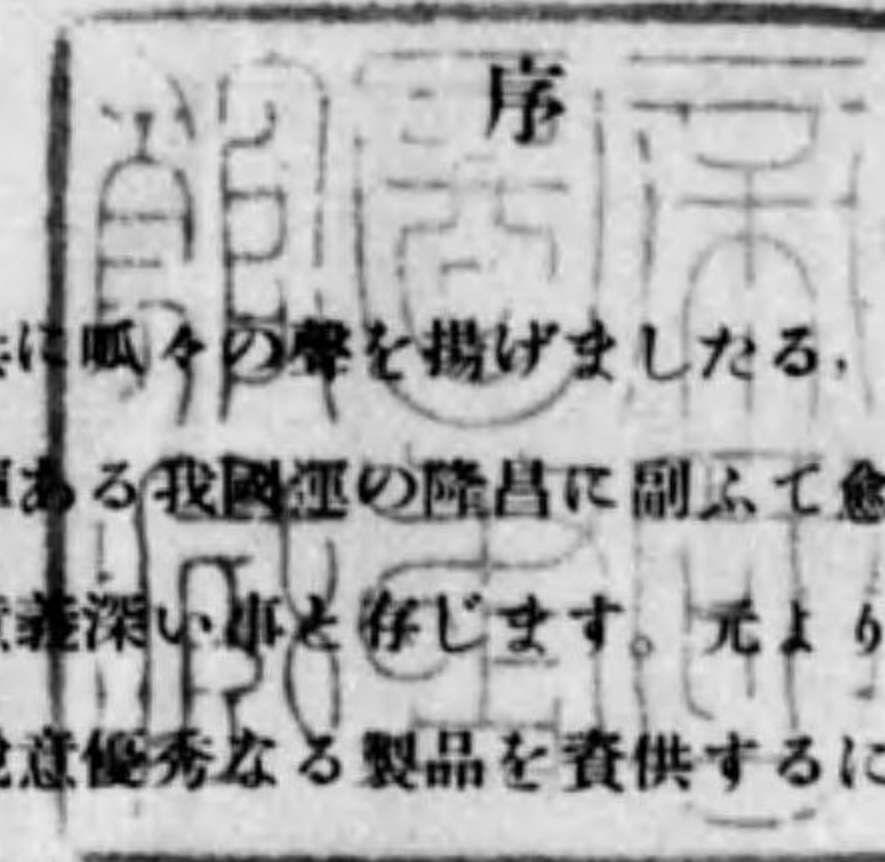 序
に呱々の聲を揚げましたる、
ある我國運の隆昌に副ふて愈
義深い事と存じます。元より
意優秀なる製品を資供するに